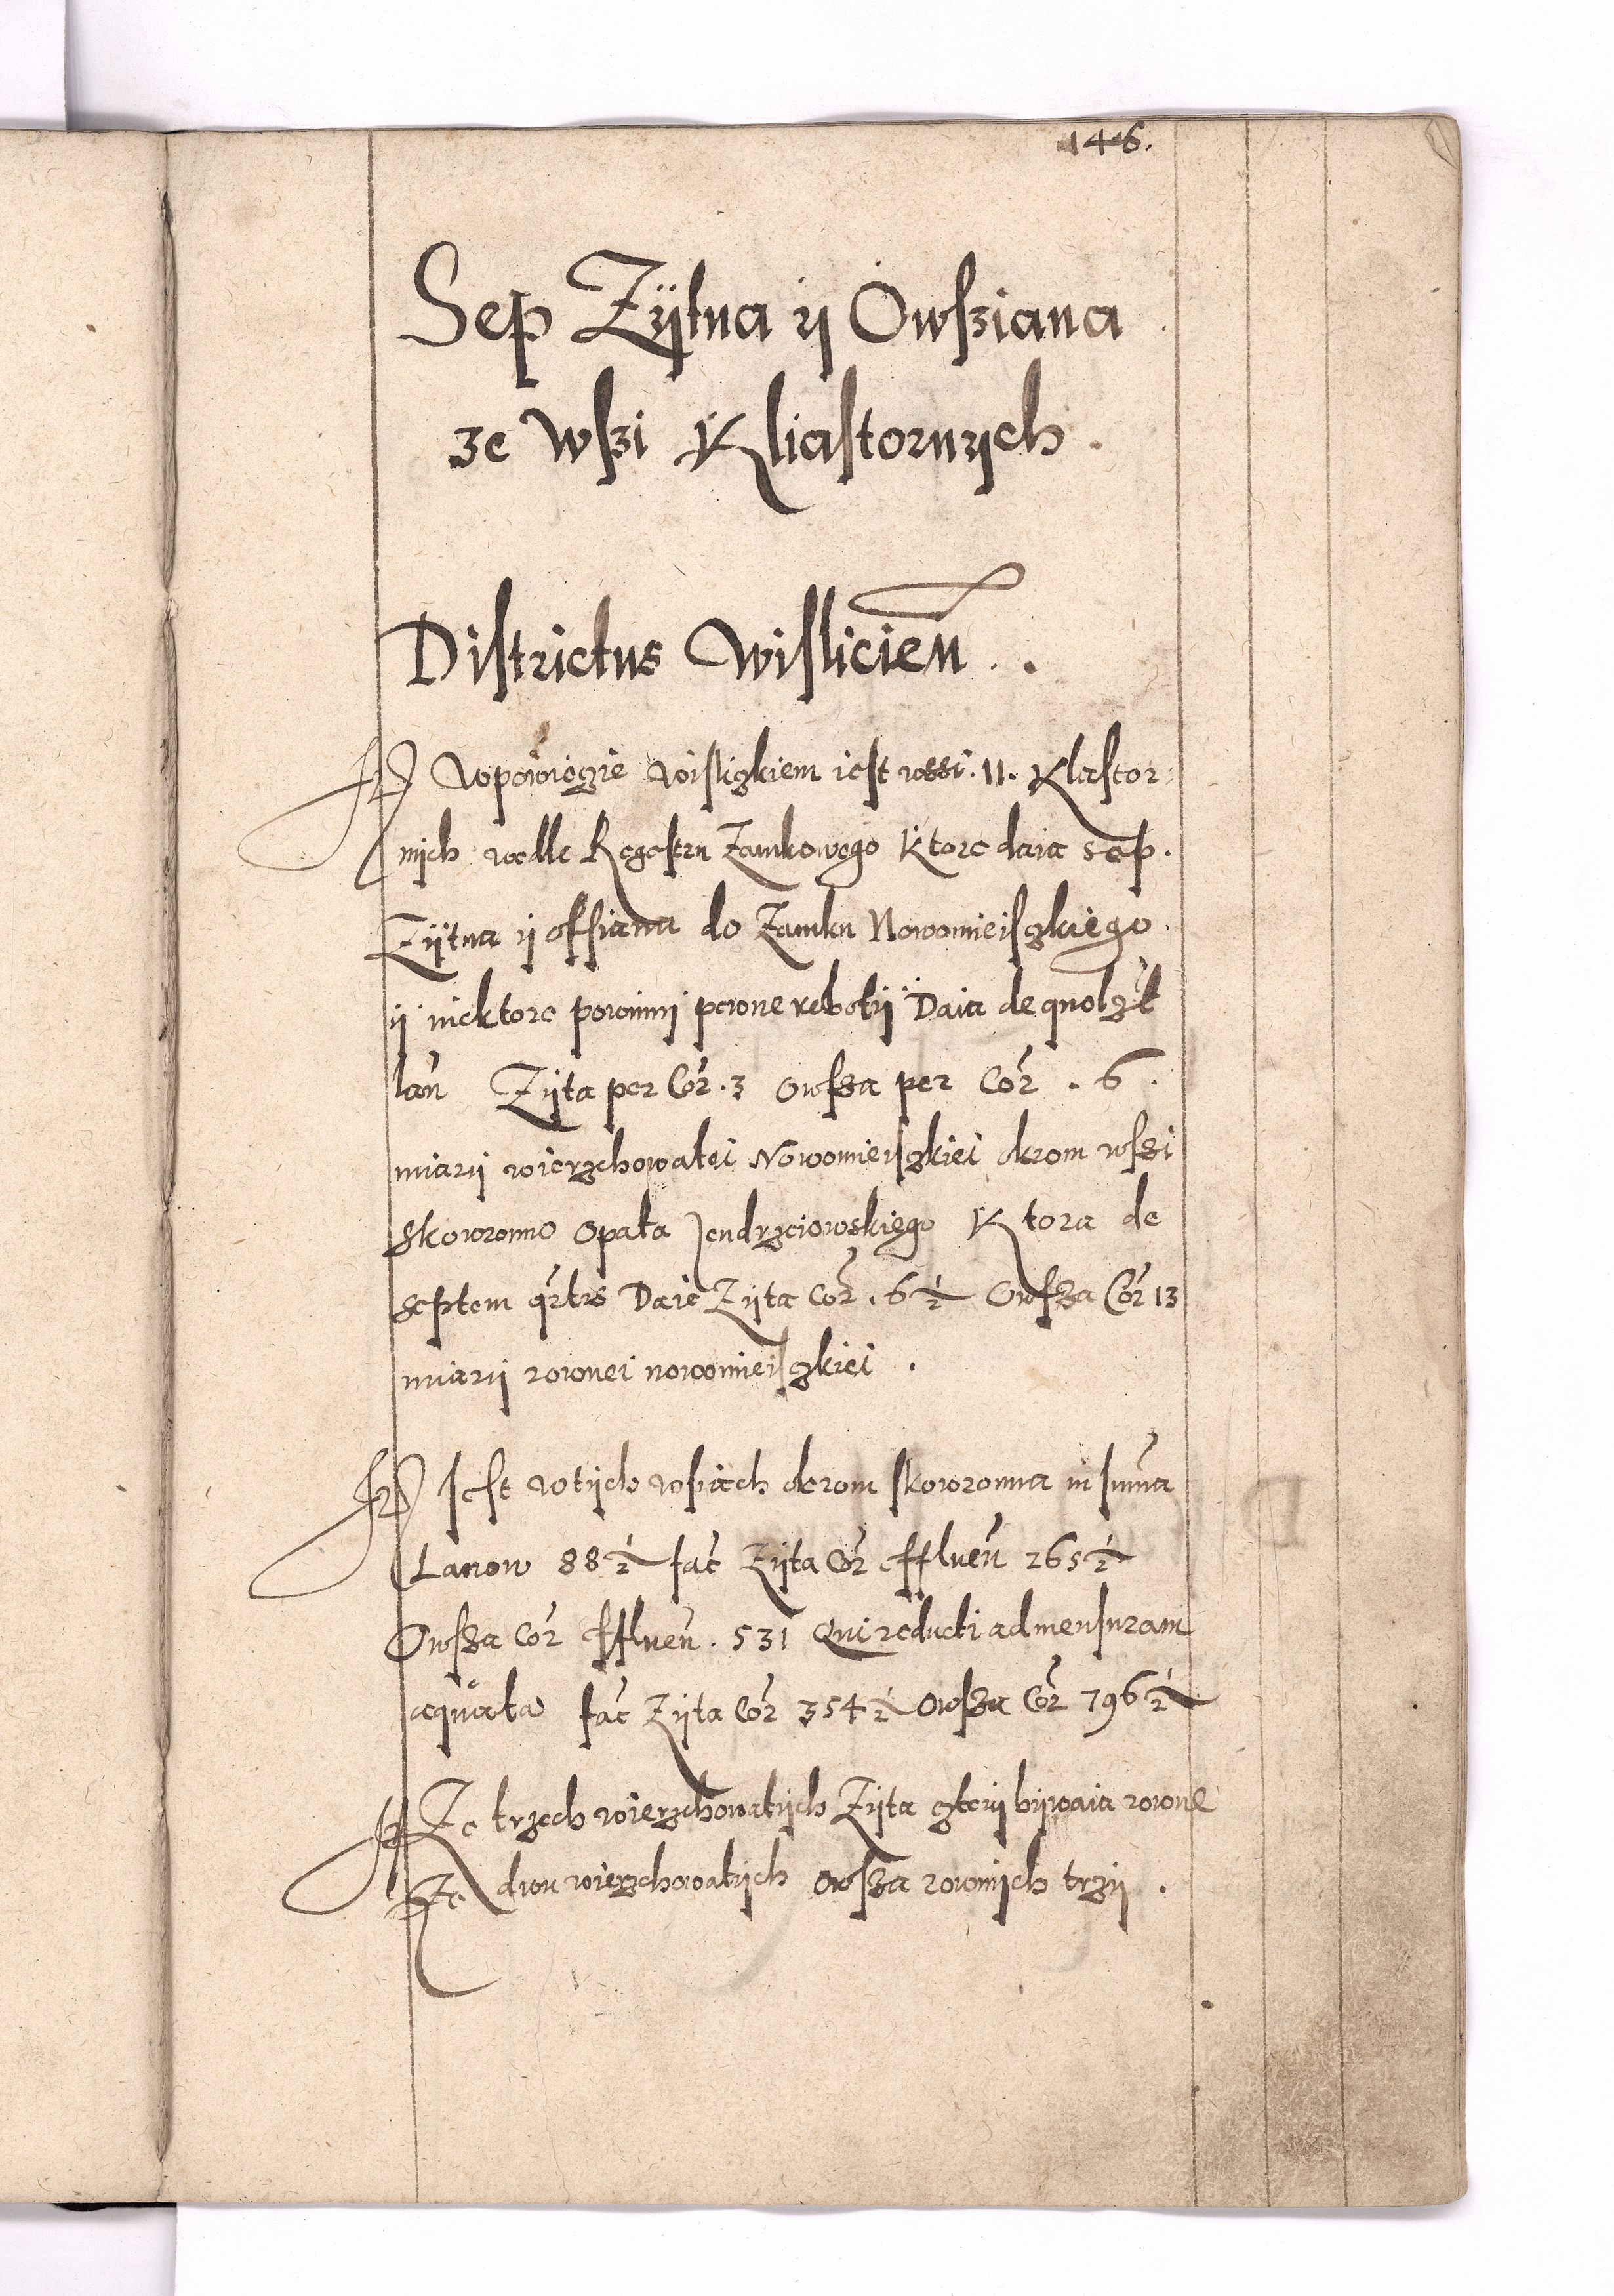 146.
Sep Zÿtna ÿ Owsziana
ze Wszi Kliastornych.
Districtus Wislicien̄..
It Wpowiezie wislizkiem iest wssi .11. Klastor-
nÿch wedle Regestru Zamkowego Ktore daia Sep.
Zÿtna ÿ offiana do Zamku Nowomieiszkiego.
ÿ niektore powinnÿ pewne robotÿ Daia de quolzt
lan̄ Zÿta per Cor̄.3 owsza per Cor̄ .6.
miarÿ wierzchowatei Nowomieiszkiei okrom wszi
Skowronno Opata Jendrzeiowskiego Ktora de
septem qr̄tis Daie Zÿta Cor̄.6½ Owsza Cor̄ 13
miarÿ rownei nowomieiszkiei.
It Jest wtÿch wsiach okrom skowronna in sum̄a
Lanow 88½ fac̄ Zÿta Cor̄ effluen̄ 265½
Owsza Cor̄ effluen̄. 531 Qui reducti ad mensuram
equata fac̄ Zÿta Cor̄ 354½ Owsza Cor̄ 796½
It Ze trzech wierzchowatÿch Zÿta czterÿ bÿwaia rowne
Ze dwu wierzchowatÿch owsza rownÿch trzÿ.